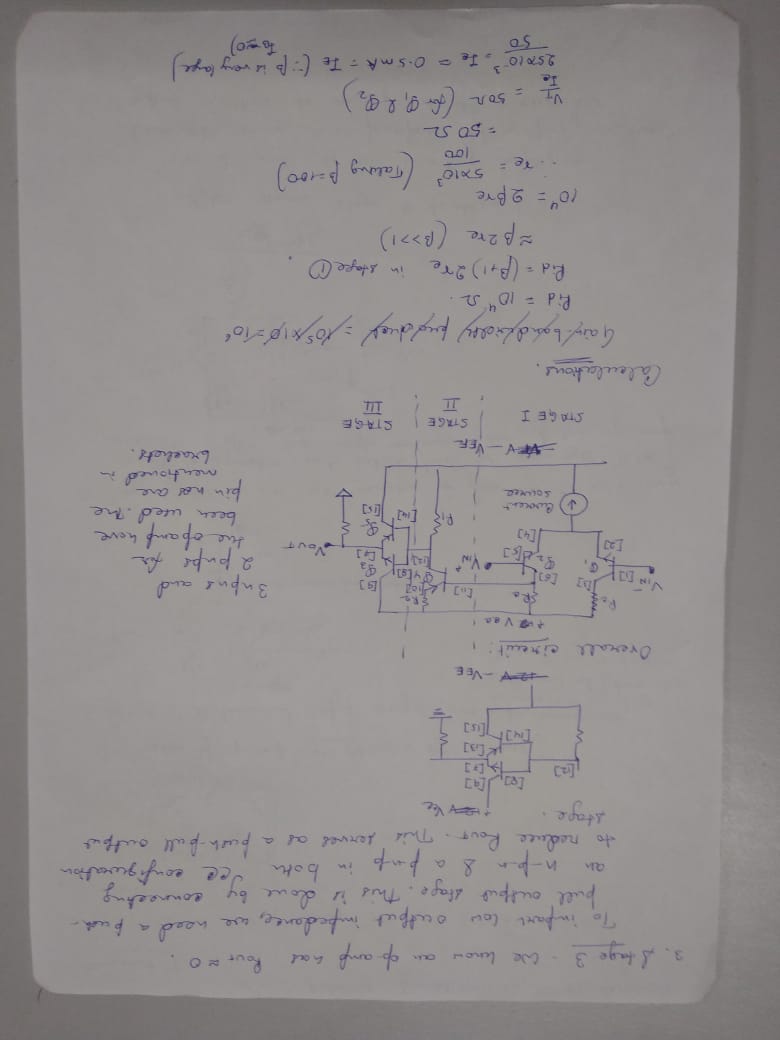 3. Stage 3 - We know an op-amp has Rout ≈ 0.
To impart low output impedance, we need a push-
pull output stage. This is done by connecting
an n-p-n & a p-n-p in both CC configuration
to reduce Rout. This serves as a push-pull output
stage.
Vcc
[9]
[8]
[12]
[7]
[13]
[14]
[15]
-VEE
Overall circuit:
+ Vcc
Rc
Rc
[11]
[9]
VIN-
[1]
[3]
Q1
[6]
[5]
Q2
VIN+
[10]
[12]
[8]
Q3
[7]
VOUT
[2]
[4]
Current
source
R1
[14]
Q5
[15]
-VEE
STAGE I
STAGE
II
STAGE
III
3 npns and
2 pnps for
the opamp have
been used. The
pin nos are
mentioned in
brackets.
Calculations.
Gain bandwidth product = 10⁵ × 10 = 10⁶
Rid = 10⁴ Ω.
Rid = (β+1) 2re in stage ①.
≈ β 2re (β>>1)
10⁴ = 2βre
∴ re = 5×10³/100 (Taking β=100)
= 50 Ω
VT/Ie = 50Ω (for Q1 & Q2)
25×10⁻³/50 = Ie = 0.5mA = Ic (∵ β is very large)
IB≈0)